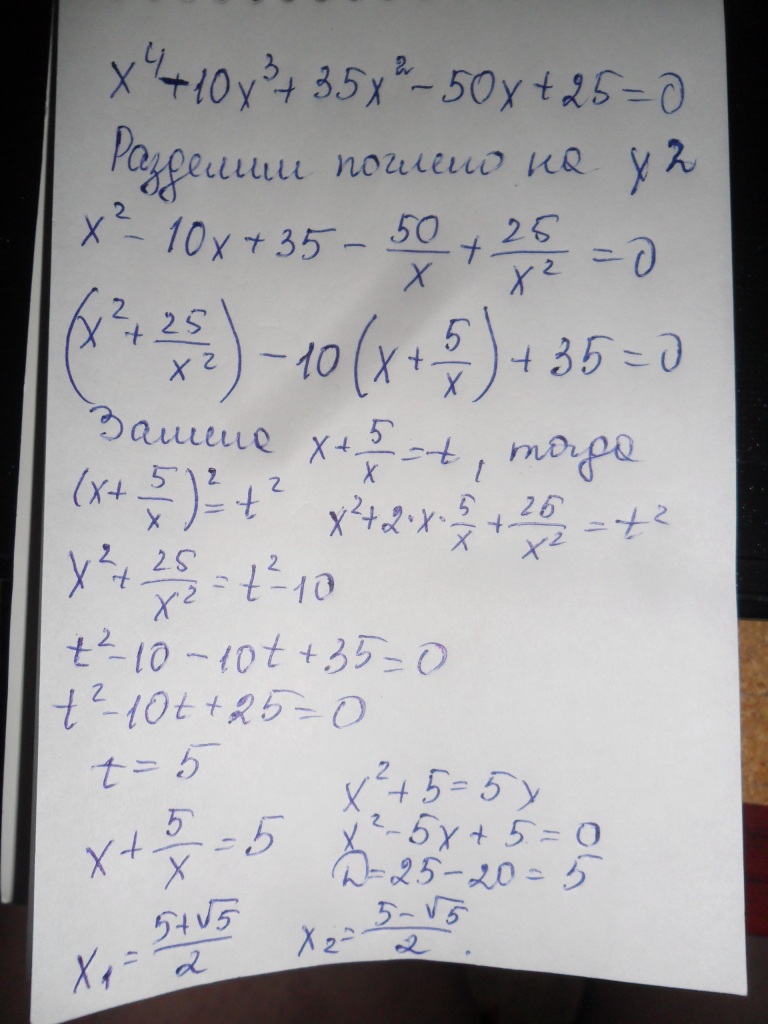 x⁴+10x³+35x²-50x+25=0
Разделим почлено на x2
x²-10x+35-50/x+25/x²=0
(x²+25/x²)-10(x+5/x)+35=0
Замена x+5/x=t, тогда
(x+5/x)²=t² x²+2·x·5/x+25/x²=t²
x²+25/x²=t²-10
t²-10-10t+35=0
t²-10t+25=0
t=5
x+5/x=5
x²+5=5x
x²-5x+5=0
D=25-20=5
x₁=(5+√5)/2 x₂=(5-√5)/2.